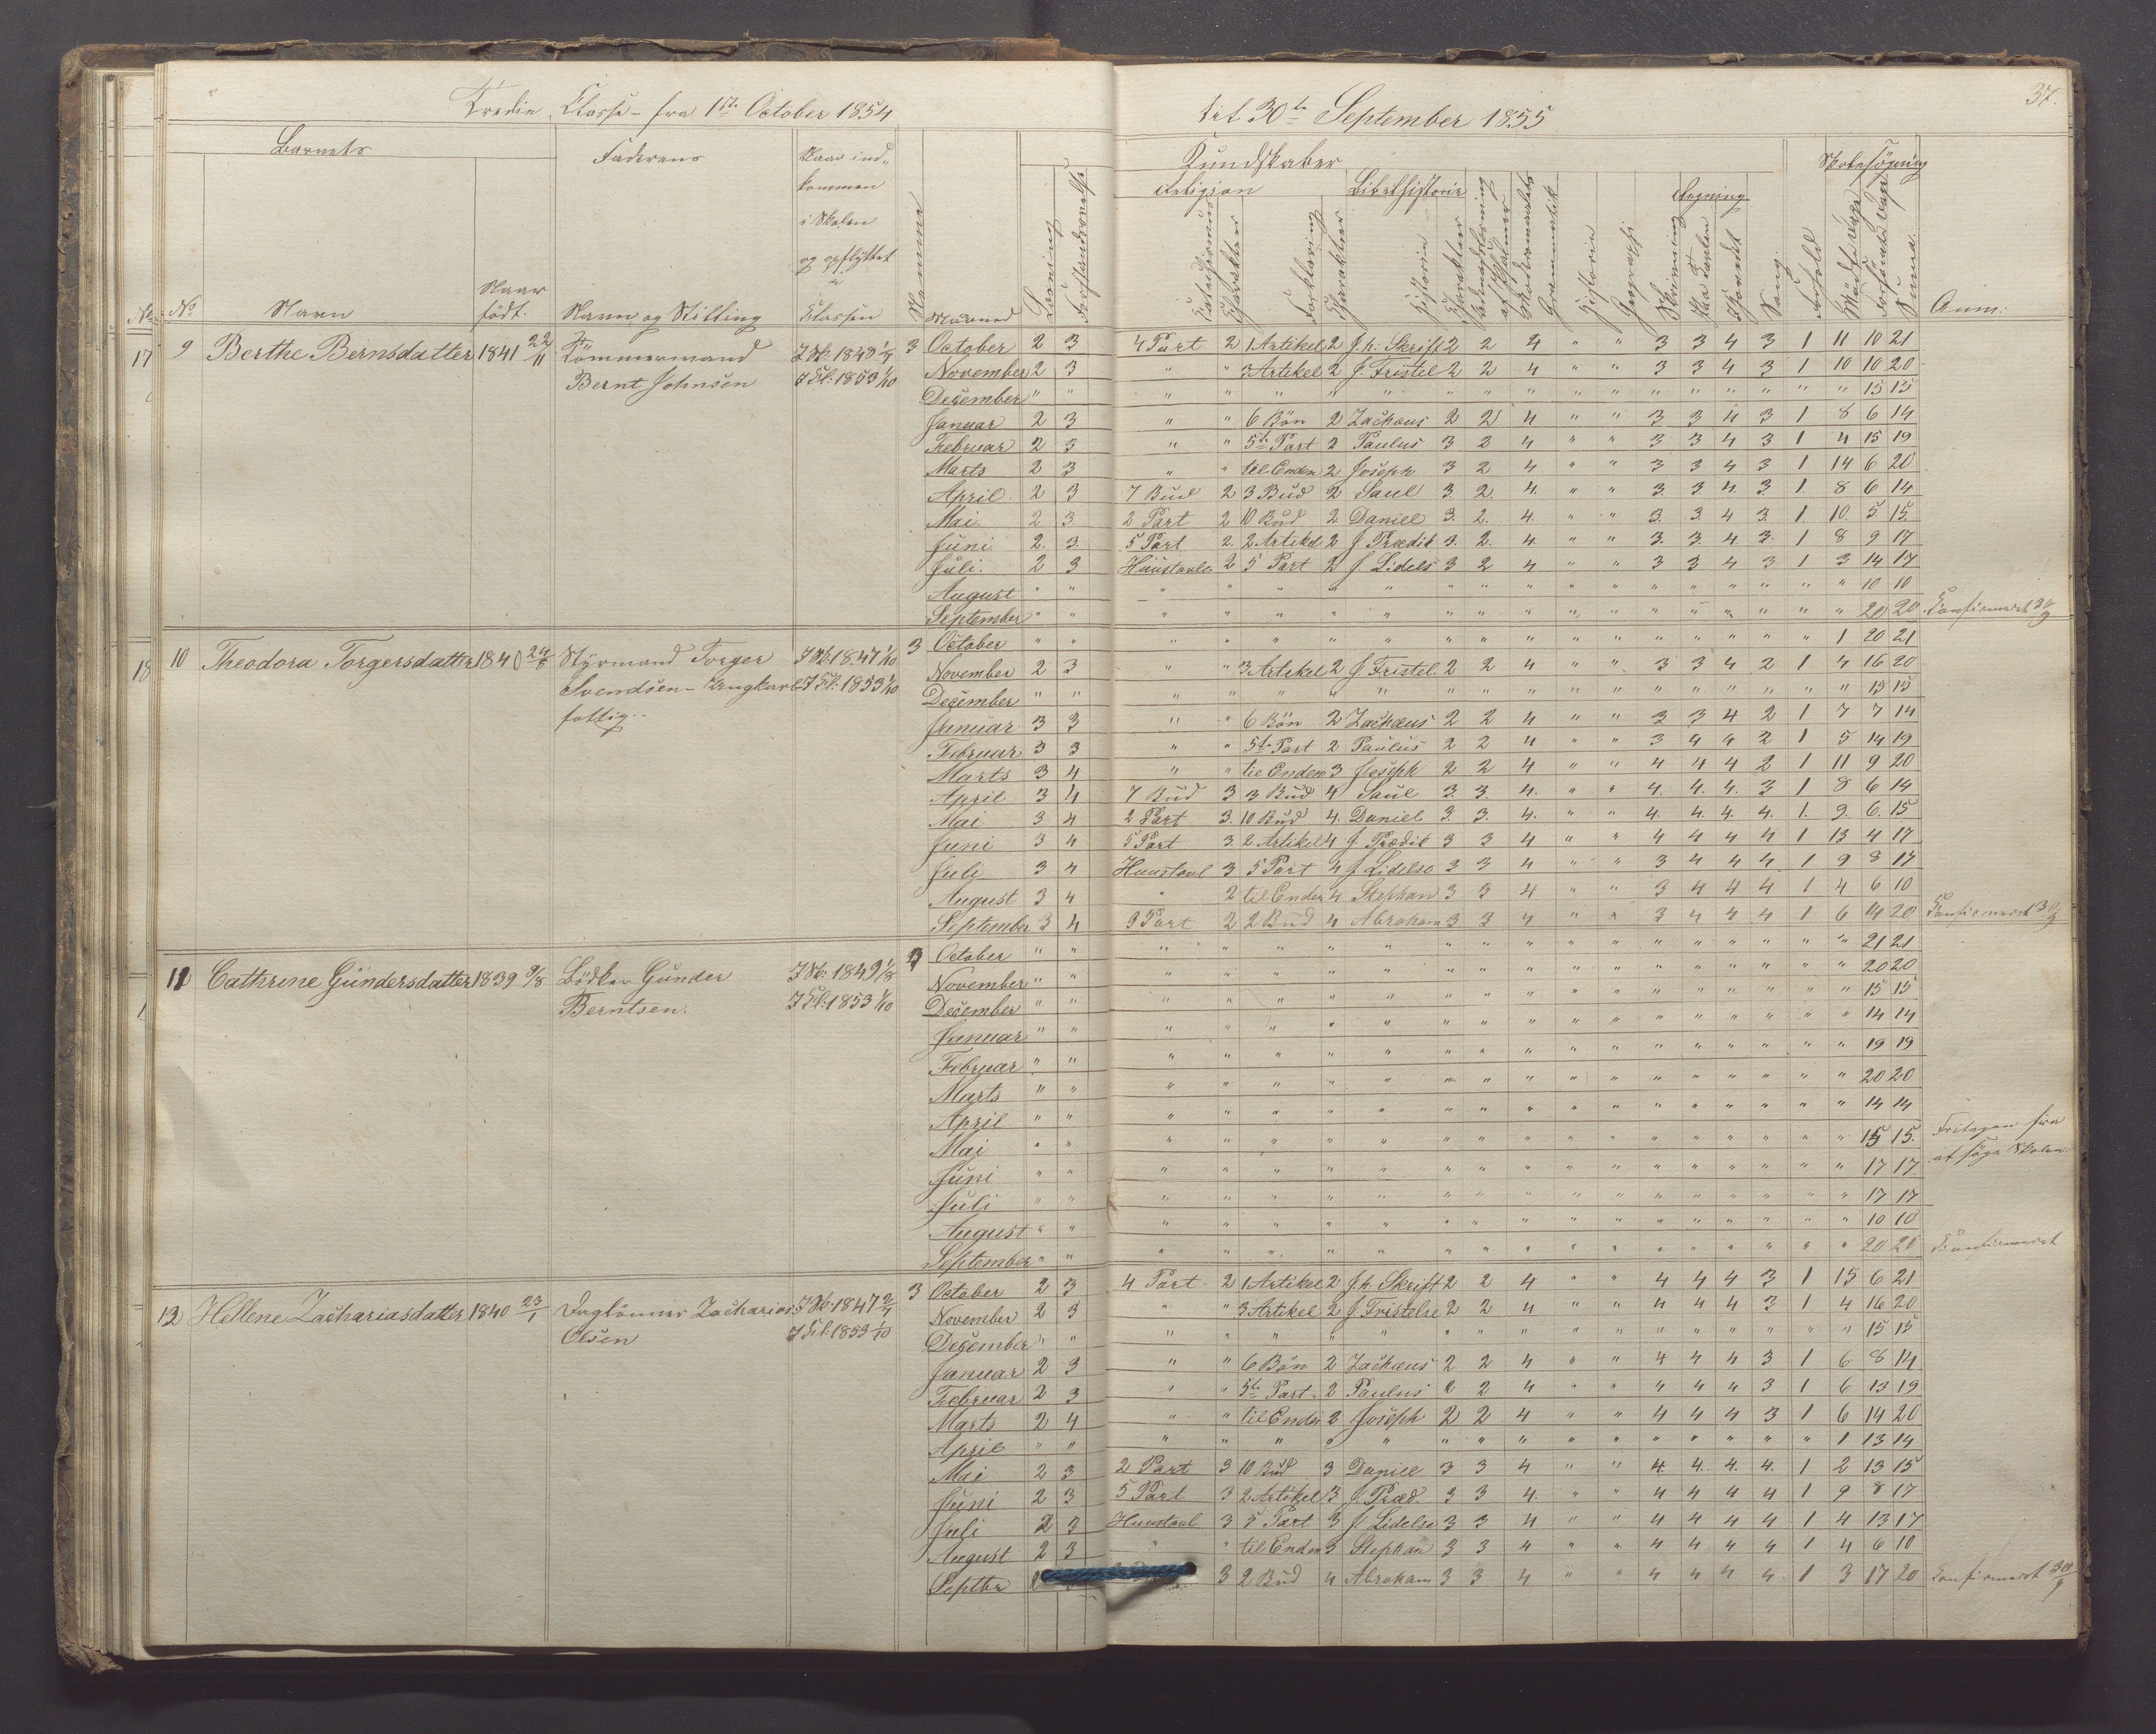 Tredie Classe – fra 1ste October 1854 til 30te September 1855
37.
Barnets
Faderens
Naar ind-
kommen
i Skolen
og opflyttet
i
Classen
Kundskaber
Religion
Bibelhistorie
Regning
Skolesøgning
No No Navn Naar født. Navn og Stilling Maaned Læsning Catechismus Characteer Forklaring Characteer Historie Characteer Grammatik Historie Geographi Skrivning Sang Forhold Summa Anm:
17 9 Berthe Bernsdatter 1841 22/11 Tömmermand Bernt Johnsen
J Sk: 1848
J Cl: 1853 1/10
3 October 2 3 4 Part 2 1 Artikel 2 J. h: Skrift 2 2 4 " " 3 3 4 3 1 11 10 21
November 2 3 " " 3 Artikel 2 J. Fristel 2 2 4 " " 3 3 4 3 1 10 10 20
December " " " " " " " " " " " " " " " " " " 15 15
Januar 2 3 " " 6 Bön 2 Zachæus 2 2 4 " " 3 3 4 3 1 8 6 14
Februar 2 3 " " 5te Part 2 Paulus 3 2 4 " " 3 3 4 3 1 4 15 19
Marts 2 3 " " til Enden 2 Joseph 3 2 4 " " 3 3 4 3 1 14 6 20
April 2 3 7 Bud 2 3 Bud 2 Saul 3. 2. 4. " " 3. 3 4. 3. 1. 8 6 14
Mai. 2 3 2 Part 2 10 Bud 2 Daniel 3. 2. 4. " " 3. 3. 4 3. 1. 10. 5. 15.
Juni 2. 3. 5 Part 2. 2 Artikel 2 J. Prædik 3. 2. 4. " " 3. 3. 4 3. 1 8 9 17
Juli. 2 3 Huustavle 2 5 Part 2 J Lidels 3 2 4 " " 3 3 4 3 1 3 14 17
August " " " " " " " " " " " " " " " " " " 10 10
September " " " " " " " " " " " " " " " " " " 20 20 Confirmeret 30/9
18 10 Theodora Torgersdatter 1840 Styrmand Torger
Svendsen –
fattig.
J Sk: 1847 1/10
J Cl: 1853 1/10
3 October " " " " " " " " " " " " " " " " " 1 20 21
November 2 3 " " 3 Artikel 2 J. Fristel. 2 2 4 " " 3 3 4 2 1 4 16 20
December " " " " " " " " " " " " " " " " " " 15 15
Januar 3 3 " " 6 Bön 2 Zachæus 2 2 4 " " 3 3 4 2 1 7 7 14
Februar 3 3 " " 5te Part 2 Paulus 2 2 4 " " 3 4 4 2 1 5 14 19
Marts 3 4 " " til Enden 3 Joseph 2 2 4 " " 4 4 4 2 1 11 9 20
April 3 4 7 Bud 3 3 Bud 4 Saul 3. 3. 4. " " 4. 4. 4. 3 1 8 6 14
Mai 3 4 2 Part 3. 10 Bud 4. Daniel 3. 3. 4. " " 4. 4. 4. 4. 1. 9. 6. 15
Juni 3 4 5 Part 3. 2 Artikel 4 J. Prædik 3 3 4 " " 4 4 4 4 1 13 4 17
Juli 3 4 Huustavl 3 5 Part 4 J Lidelse 3 3 4 " " 3 4 4 4 1 9 8 17
August 3 4 " 2 til Enden 4 Stephan 3 3 4 " " 3 4 4 4 1 4 6 10
September 3 4 3 Part 2 2 Bud 4 Abraham 3 3 4 " " 3 4 4 4 1 6 14 20 Confirmeret 30/9
11 Cathrine Gundersdatter 1839 9/8 Bödker Gunder
Berntsen.
J Sk: 1849 1/8
J Cl: 1853 1/10
3 October " " " " " " " " " " " " " " " " " " 21 21
November " " " " " " " " " " " " " " " " " " 20 20
December " " " " " " " " " " " " " " " " " " 15 15
Januar " " " " " " " " " " " " " " " " " " 14 14
Februar " " " " " " " " " " " " " " " " " " 19 19
Marts " " " " " " " " " " " " " " " " " " 20 20
April " " " " " " " " " " " " " " " " " " 14 14
Mai " " " " " " " " " " " " " " " " " " 15 15. Fritagen fra
Juni " " " " " " " " " " " " " " " " " " 17 17 at søge Skolen
Juli " " " " " " " " " " " " " " " " " " 17 17
August " " " " " " " " " " " " " " " " " " 10 10
September " " " " " " " " " " " " " " " " " " 20 20 Confirmeret
12 Hellene Zachariasdatter 1840 23/1 Daglönner Zacharias
Olsen
J Sk: 1847 2/7
J Cl: 1853 1/10
3 October 2 3 4 Part 2 1 Artikel 2 J. h. Skrift 2 2 4 " " 4 4 4 3 1 15 6 21
November 2 3 " " 3 Artikel 2 J. Fristelse 2 2 4 " " 4 4 4 3 1 4 16 20
December " " " " " " " " " " " " " " " " " " 15 15
Januar 2 3 " " 6 Bön 2 Zachæus 2 2 4 " " 4 4 4 3 1 6 8 14
Februar 2 3 " " 5te Part 2 Paulus 2 2 4 " " 4 4 4 3 1 6 13 19
Marts 2 4 " " til Enden 2 Joseph 2 2 4 " " 4 4 4 3 1 6 14 20
April " " " " " " " " " " " " " " " " " 1 13 14
Mai 2 3 2 Part 3 10 Bud 3 Daniel 3 3 4 " " 4. 4. 4. 4. 1 2 13 15
Juni 2 3 5 Part 3 2 Artikel 3 J. Præd. 3 3 4. " " 4 4 4 4 1 9 8 17
Juli 2 3 Huustavl 3 5 Part 3 J Lidelse 3 3 4 " " 4 4 4 4 1 4 13 17
August 2 3 " " til Enden 3 Stephan 3 3 4 " " 4 4 4 4 1 4 6 10
Septbr 3 2 Bud 4 Abraham 3 3 4 " " 4 4 4 4 1 3 17 20 Confirmeret 30/9